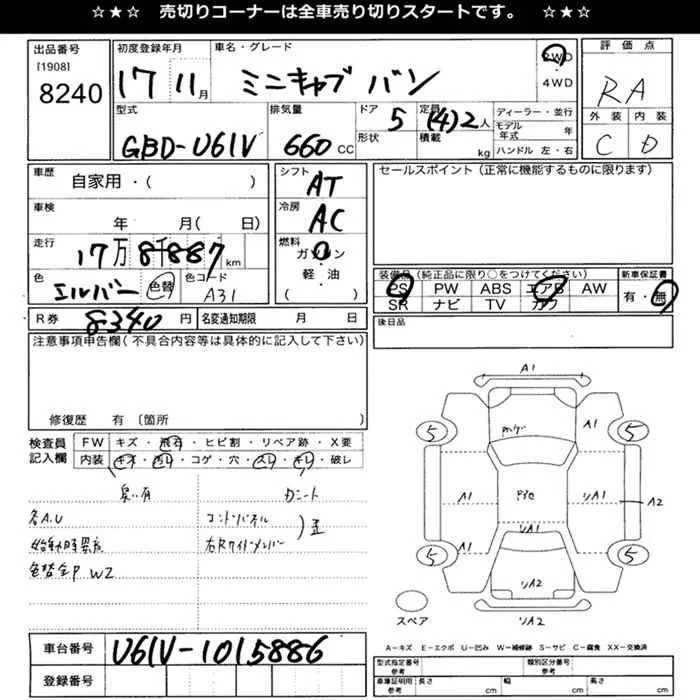 ☆ ★ ☆ 売切りコーナーは全車売り切りスタートです。 ☆ ★ ☆
出品番号
[1908]
8240
初度登録年月
17 11月
車名・グレード
ミニキャブ バン
2WD
・
4WD
型式
GBD-U61V
排気量
660 CC
ドア 5
形状
定員 (4)2人
積載 kg
ディーラー・並行
モデル年式 年
ハンドル 左・右
評価点
RA
外装 内装
C D
車歴
自家用・( )
車検
年 月( 日)
走行
17万8千887km
色
色替
色コード
A31
シフト AT
冷房 AC
燃料
ガソリン
軽・油
( )
セールスポイント(正常に機能するものに限ります)
装備品(純正品に限り○をつけてください)
PS PW ABS エアB AW
SR ナビ TV カワ
新車保証書
有・無
R券 8340円
名変通知期限 月 日
後日品
注意事項申告欄(不具合内容等は具体的に記入して下さい)
修復歴 有〔箇所 〕
検査員
記入欄
FW キズ・飛石・ヒビ割・リペア跡・X要
内装 キズ・汚レ・コゲ・穴・スレ・キレ・破レ
各A.U
色替全P W2
コントパネル
A1
A1
5
5
A1
リA1
A2
リA1
A1
5
5
リA2
リA2
スペア
A−キズ E−エクボ U−凹み W−補修跡 S−サビ C−腐食 XX−交換済
車台番号 U61V-1015886
登録番号
型式指定番号
参考
類別区分番号
参考
車庫証明用
参考
長さ cm 幅 cm 高さ cm